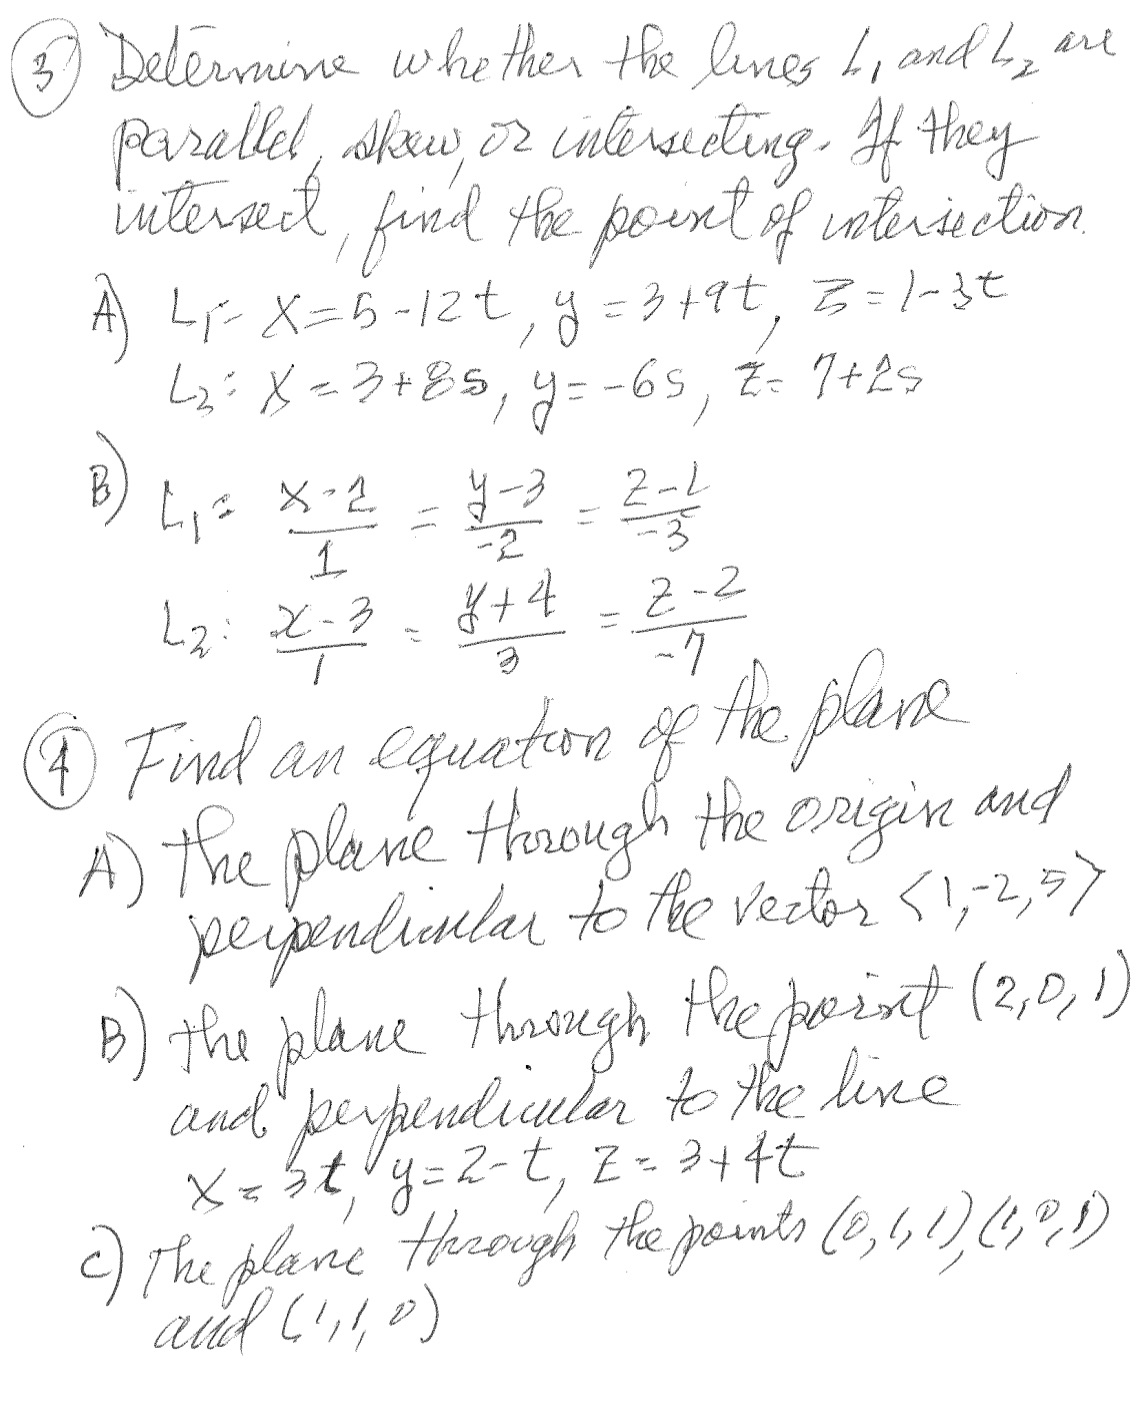 ③ Determine whether the lines L₁ and L₂ are
parallel, skew, or intersecting. If they
intersect, find the point of intersection.
A) L₁: X=5-12t, y=3+9t, z=1-3t
L₂: X=3+8s, y=-6s, z=7+2s
B) L₁: (x-2)/1 = (y-3)/-2 = (z-1)/-3
L₂: (x-3)/1 = (y+4)/3 = (z-2)/-7
④ Find an equation of the plane
A) the plane through the origin and
perpendicular to the vector <1,-2,5>
B) the plane through the point (2,0,1)
and perpendicular to the line
X=3t, y=2-t, z=3+4t
C) The plane through the points (0,1,1), (1,0,1)
and (1,1,0)